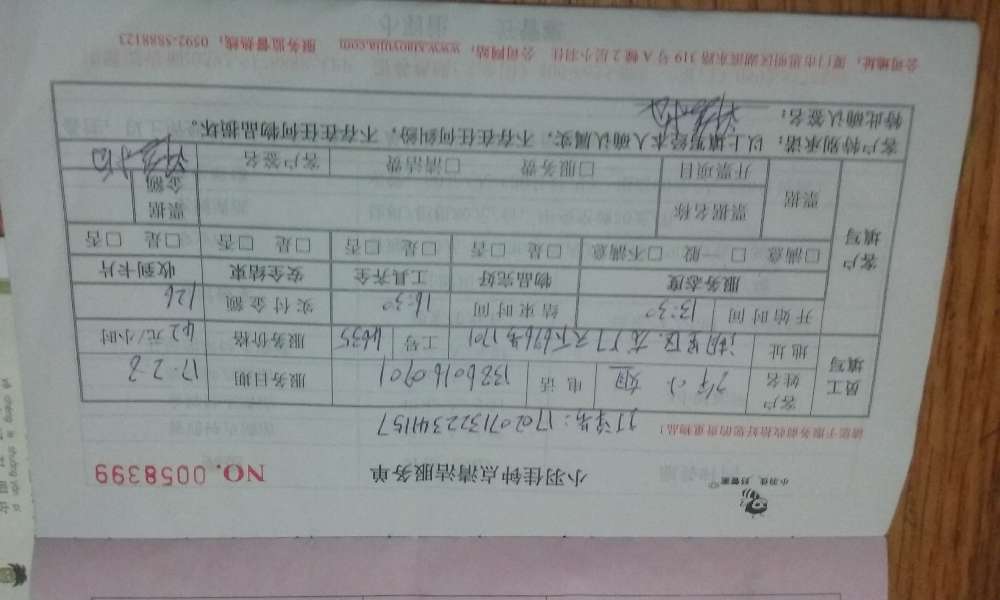 小羽佳，好管家
小羽佳钟点清洁服务单 NO. 0058399
请您于服务前收拾好您的贵重物品！
订单号：1702071322341157
员工填写 客户姓名 姐 电话 13860160701 服务日期 17.2.8
地址 工号 4635 服务价格 42元/小时
开始时间 13:30 结束时间 16:30 实付金额 126
客户填写 服务态度 物品完好 工具齐全 安全结束 收到卡片
□满意 □一般 □不满意 □是 □否 □是 □否 □是 □否 □是 □否
票据 票据名称 票据金额
开票项目 □服务费 □清洁费 客户签名
客户特别承诺：以上填写经本人确认属实，不存在任何纠纷，不存在任何物品损坏。
特此确认签名：
公司地址：厦门市思明区湖滨东路 319 号 A 幢 2 层小羽佳 公司网站：www.xiaoyujia.com 服务监督热线：0592-5888123